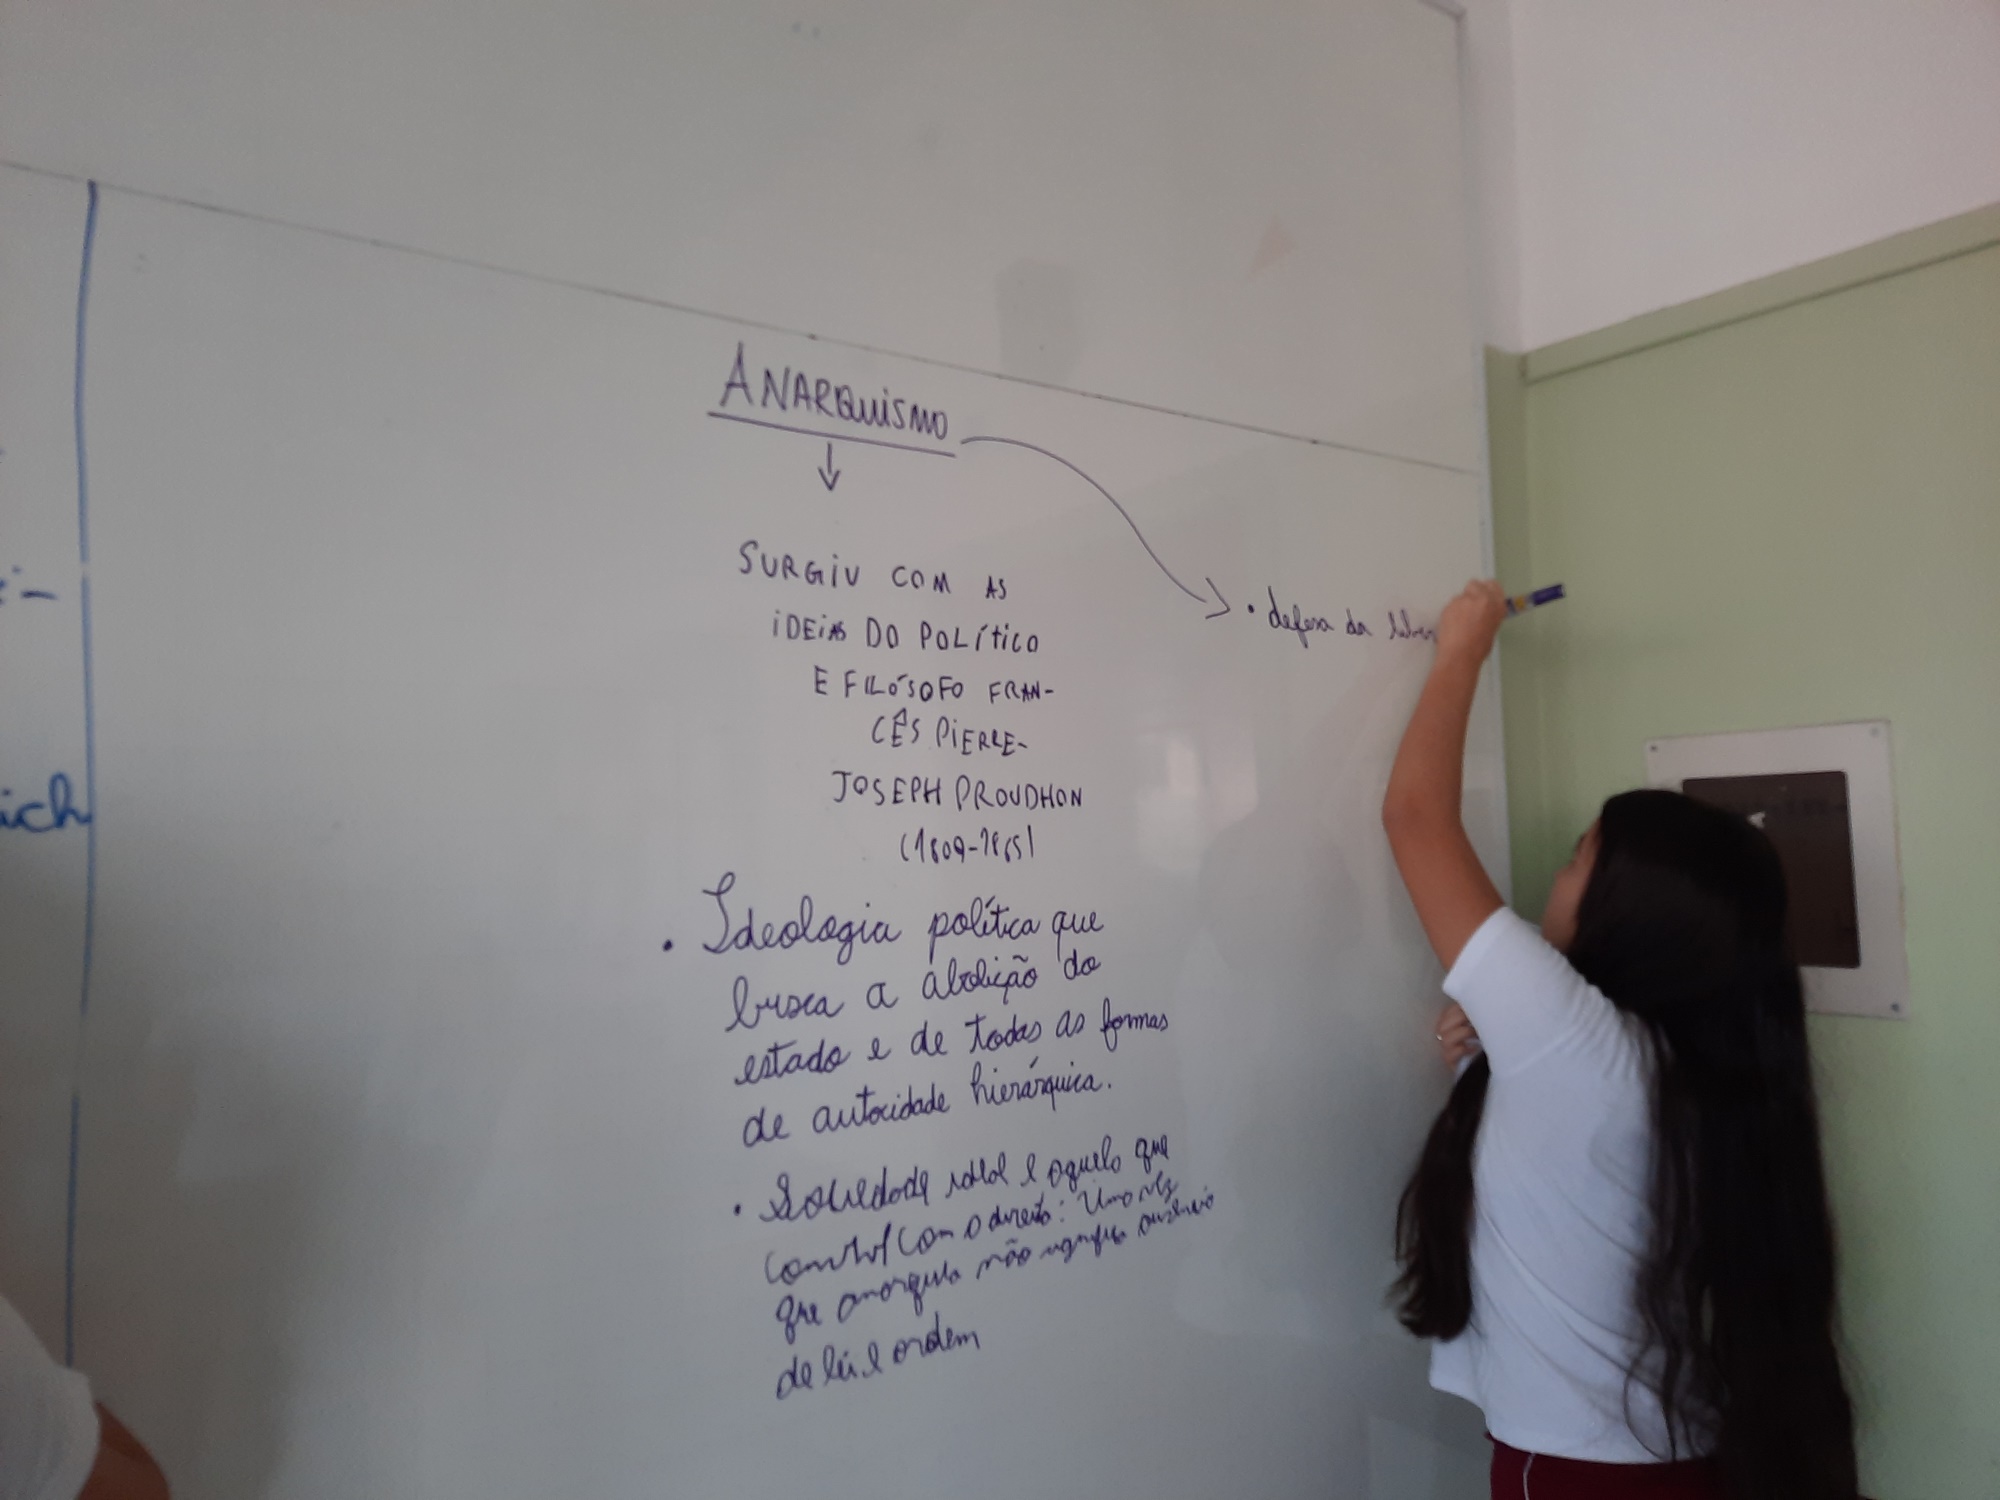 ANARQUISMO
SURGIU COM AS
IDEIAS DO POLÍTICO
E FILÓSOFO FRAN-
CÊS PIERRE-
JOSEPH PROUDHON
(1809-1865)
• Ideologia política que
busca a abolição do
estado e de todas as formas
de autoridade hierárquica.
• Sociedade ideal e aquela que
com o direito: Uma vez
que anarquia não significa ausência
de lei e ordem
• defesa da
ich